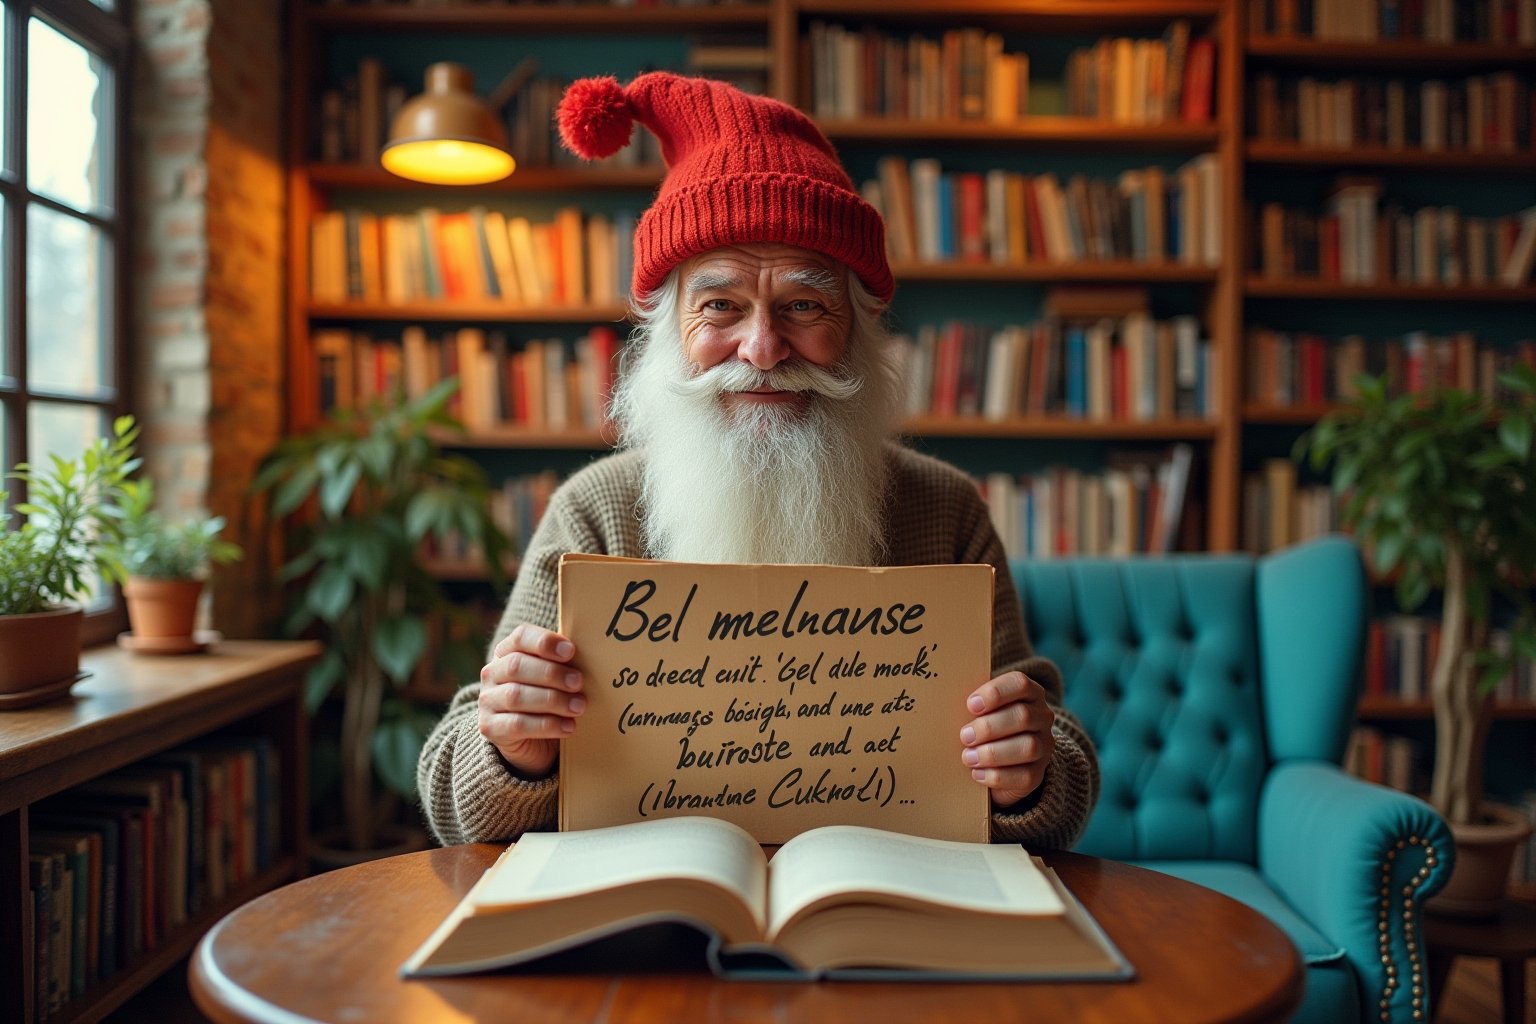 Bel melnanse
so decd euit. 'Gel dule mock,'.
(urnmags bósigh, and une atc
buîroste and aet
(Ibrantme Cuknól)...